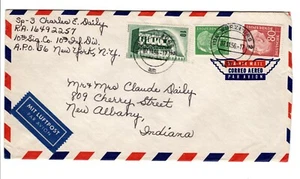 Sp-3 Charles E. Daily
R.A. 16492257
10th Sig. Co. 10th Inf. Div.
A.P.O. 36 New York, N.Y.
Mr + Mrs Claude Daily
809 Cherry Street
New Albany,
Indiana
MIT LUFTPOST
PAR AVION
VIA AIR MAIL
CORREO AEREO
PAR AVION